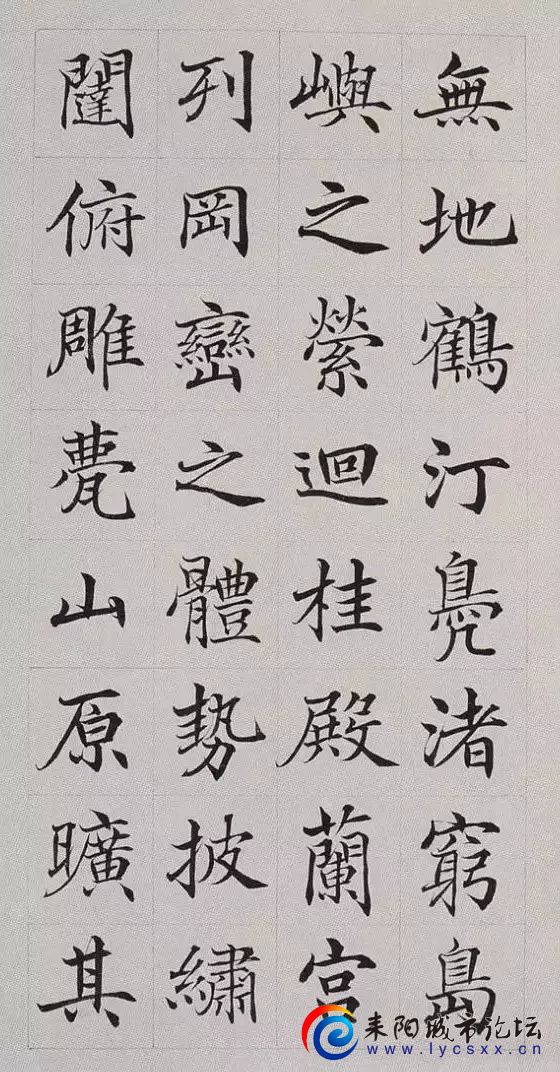 無地鶴汀鳧渚窮島
嶼之縈迴桂殿蘭宮
列岡巒之體勢披繡
闥俯雕甍山原曠其
耒阳城市论坛
www.lycsxx.cn